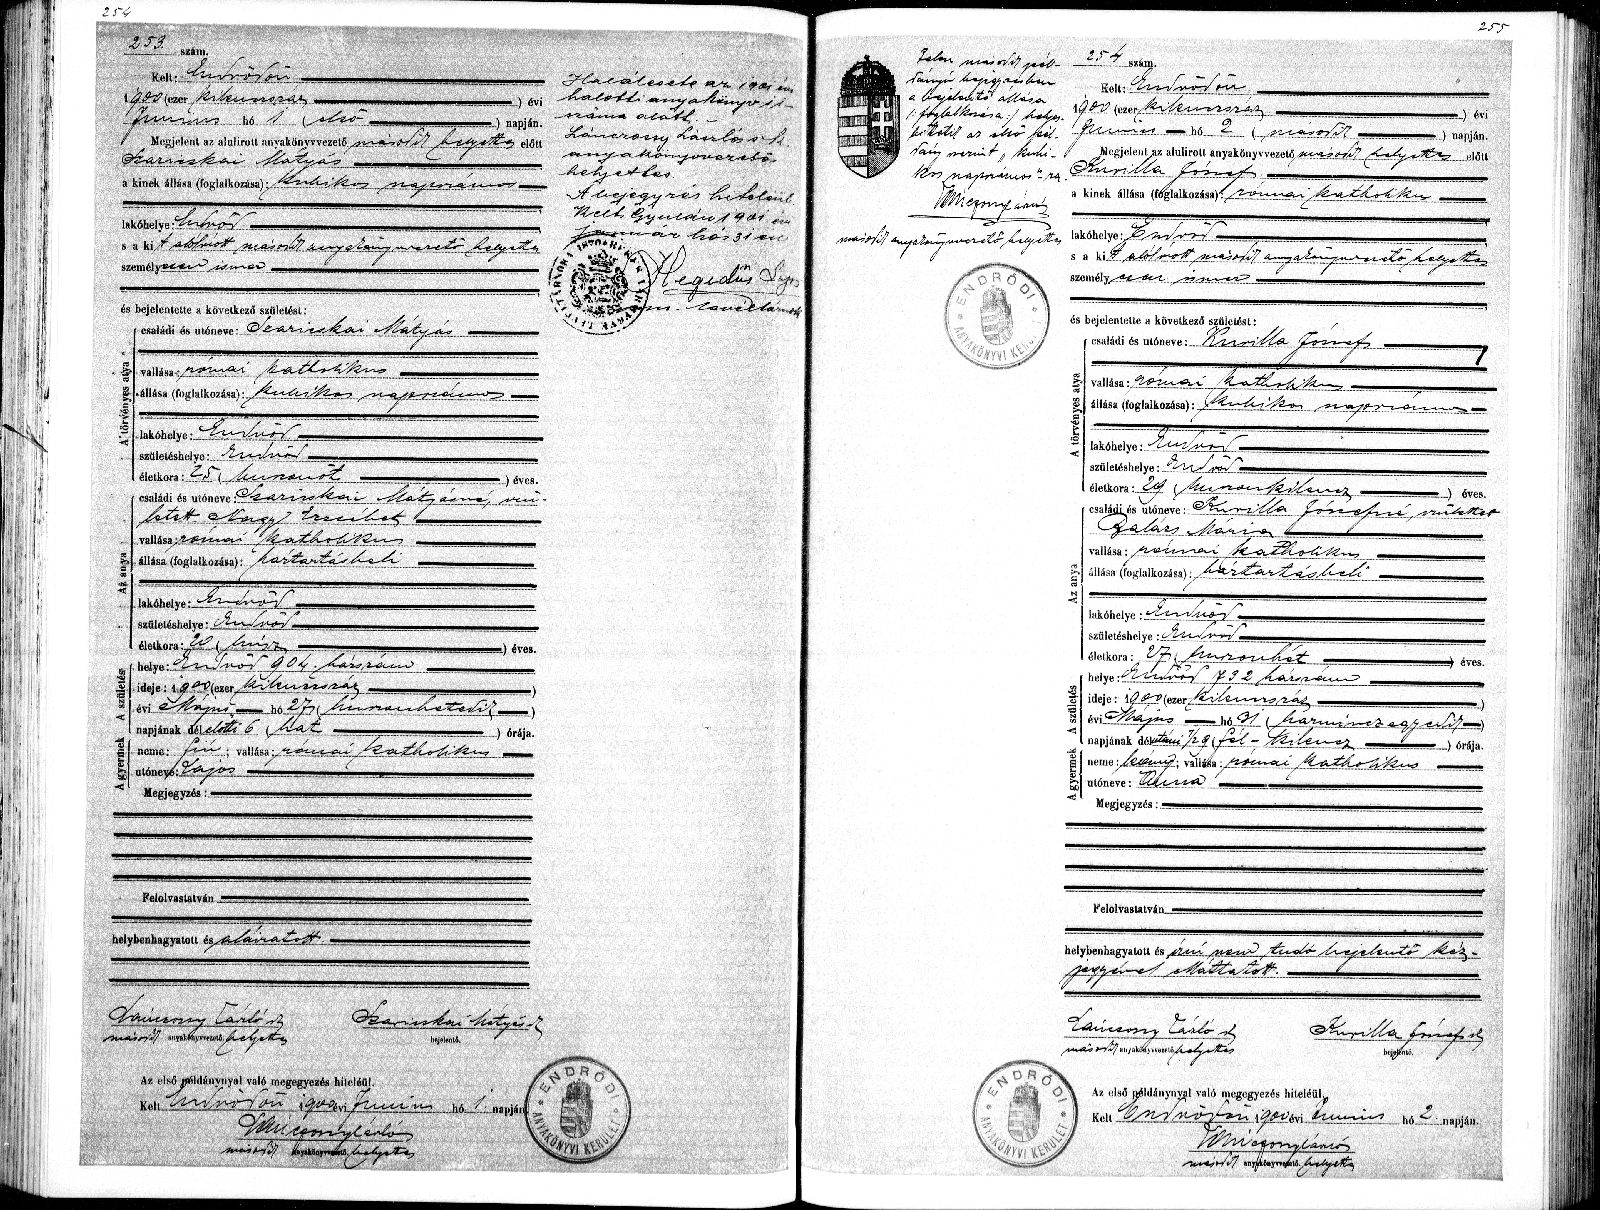 254
253. szám.
Kelt: Endrődön
1900 (ezer kilenczszáz ) évi
Junius hó 1 ( első ) napján.
Megjelent az alulirott anyakönyvvezető második helyettes előtt
Szarincskai Mátyás
a kinek állása (foglalkozása): kubikos napszámos
lakóhelye: Endrőd
s a kit alólirott második anyakönyvvezető helyettes
személyesen ismer
és bejelentette a következő születést:
A törvényes atya
családi és utóneve: Szarincskai Mátyás
vallása: római katholikus
állása (foglalkozása): kubikos napszámos
lakóhelye: Endrőd
születéshelye: Endrőd
életkora: 25 ( huszonöt ) éves.
Az anya
családi és utóneve: Szarincskai Mátyásné, szü-
letett Nagy Erzsébet
vallása: római katholikus
állása (foglalkozása): háztartásbeli
lakóhelye: Endrőd
születéshelye: Endrőd
életkora: 20 ( húsz ) éves.
A születés
helye: Endrőd 904. házszám
ideje: 1900 (ezer kilenczszáz )
évi Május hó 27 ( huszonhetedik )
napjának dél előtti 6 ( hat ) órája.
A gyermek
neme: fiú; vallása: római katholikus
utóneve: Lajos
Megjegyzés:
Felolvastatván
helybenhagyatott és aláiratott.
Lánczony László sk Szarincskai Mátyás sk
második anyakönyvvezető helyettes bejelentő.
Az első példánynyal való megegyezés hiteléül.
Kelt Endrődön 1900 évi Junius hó 1. napján
Lánczony László
második anyakönyvvezető helyettes
ENDRŐDI ANYAKÖNYVI KERÜLET
Halálesete az 1901 évi
halotti anyakönyv
száma alatt.
Lánczony László s. k.
anyakönyvvezető
helyettes.
A bejegyzés hiteléül
Kelt Gyulán 1901 évi
Január hó 31 én
Hegedűs
255
254 szám.
Kelt: Endrődön
1900 (ezer kilenczszáz ) évi
Junius hó 2 ( második ) napján.
Megjelent az alulirott anyakönyvvezető második helyettes előtt
Kurilla József
a kinek állása (foglalkozása): római katholikus
lakóhelye: Endrőd
s a kit alólirott második anyakönyvvezető helyettes
személyesen ismer
és bejelentette a következő születést:
A törvényes atya
családi és utóneve: Kurilla József
vallása: római katholikus
állása (foglalkozása): kubikos napszámos
lakóhelye: Endrőd
születéshelye: Endrőd
életkora: 29 ( huszonkilencz ) éves.
Az anya
családi és utóneve: Kurilla Józsefné, született
Balázs Mária
vallása: római katholikus
állása (foglalkozása): háztartásbeli
lakóhelye: Endrőd
születéshelye: Endrőd
életkora: 27 ( huszonhét ) éves.
A születés
helye: Endrőd 732 házszám
ideje: 1900 (ezer kilenczszáz )
évi Május hó 31 ( harminczegyedik )
napjának délutáni 1/2 9 ( fél-kilencz ) órája.
A gyermek
neme: leány; vallása: római katholikus
utóneve: Anna
Megjegyzés:
Felolvastatván
helybenhagyatott és írni nem tudó bejelentő kéz-
jegyével elláttatott.
Lánczony László sk Kurilla József sk
második anyakönyvvezető helyettes bejelentő.
Az első példánynyal való megegyezés hiteléül.
Kelt Endrődön 1900 évi Junius hó 2. napján.
Lánczony László
második anyakönyvvezető helyettes
ENDRŐDI ANYAKÖNYVI KERÜLET
Jelen második pél-
dányú bejegyzésben
a bejelentő állása
(:foglalkozása:) helyes-
bittetik az első pél-
dány szerint „kubi-
kos napszámos"-ra.
Lánczony László
második anyakönyvvezető helyettes
ENDRŐDI ANYAKÖNYVI KERÜLET